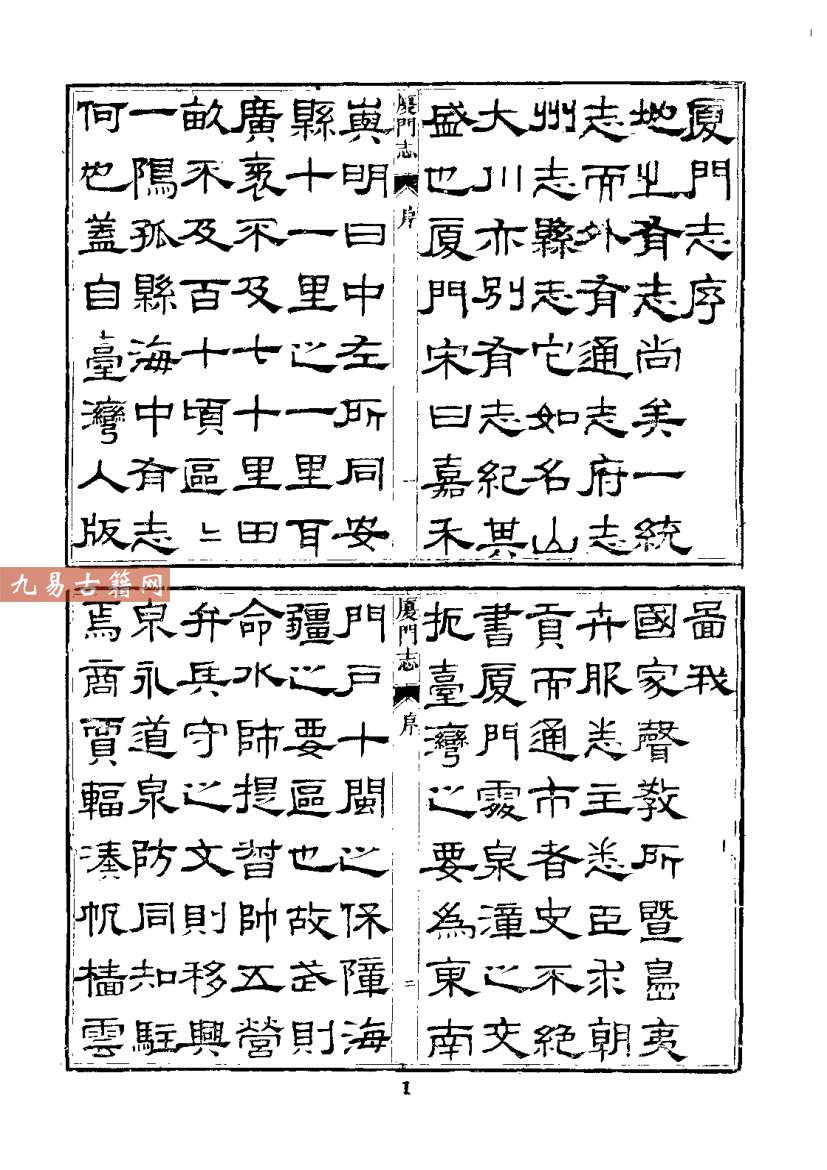 廈門志序
地之有志尚矣一統
志而外有通志府志
州志縣志它如名山
大川亦別有志紀其
盛也廈門宋曰嘉禾
廈門志
序
一
嶼明曰中左所同安
縣十一里之一里耳
廣袤不及七十里田
畝不及百十頃區區
一隅孤縣海中有志
何也蓋自臺灣人版
圖我
國家聲教所暨島夷
卉服恙主悉臣求朝
貢而通市者史不絕
書廈門處泉漳之交
扼臺灣之要為東南
廈門志
序
二
門戶十閩之保障海
疆之要區也故武則
命水師提督帥五營
弁兵守之文則移興
泉永道泉防同知駐
焉商賈輻湊帆檣雲
九易古籍网
1